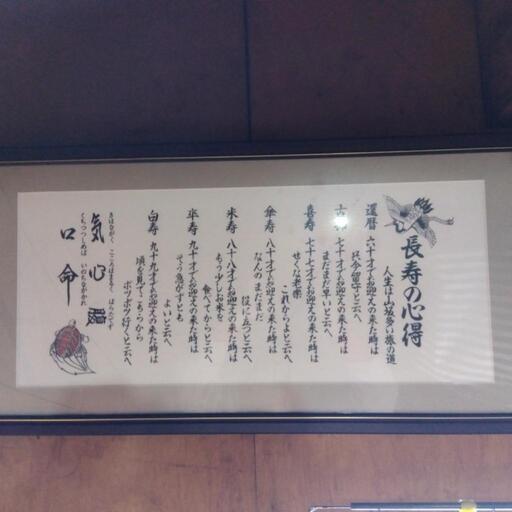 長寿の心得
人生は山坂多い旅の道
還暦 六十才でお迎えの来た時は
只今留守と云へ
古稀 七十才でお迎えの来た時は
まだまだ早いと云へ
喜寿 七十七才でお迎えの来た時は
せくな老楽
これからよと云へ
傘寿 八十才でお迎えの来た時は
なんのまだまだ
役に立つと云へ
米寿 八十八才でお迎えの来た時は
もう少しお米を
食べてからと云へ
卒寿 九十才でお迎えの来た時は
そう急がずとも
よいと云へ
白寿 九十九才でお迎えの来た時は
頃を見てこちらから
ボツボツ行くと云へ
きはながく こころはまるく はらたてず
気 心
くちつつしめば いのちながかれ
口 命